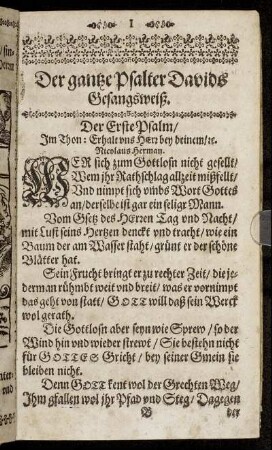 I
Der gantze Psalter Davids
Gesangsweiß.
Der Erste Psalm/
Im Thon: Erhalt vns HErr bey deinem/ꝛc.
Nicolaus Herman.
WER sich zum Gottlosn nicht gesellt/
Wem jhr Rathschlag allzeit mißfellt/
Vnd nimpt sich vmbs Wort Gottes
an/derselbe ist gar ein selig Mann.
Vom Gsetz des HErren Tag vnd Nacht/
mit Lust seins Hertzen denckt vnd tracht/wie ein
Baum der am Wasser staht/grünt er der schöne
Blätter hat.
Sein Frucht bringt er zu rechter Zeit/die je-
derman rühmbt weit vnd breit/was er vornimpt
das geht von statt/GOTT will daß sein Werck
wol gerath.
Die Gottlosn aber seyn wie Sprew/so der
Wind hin vnd wieder strewt/Sie bestehn nicht
für GOTTES Gricht/bey seiner Gmein sie
bleiben nicht.
Denn GOTT kent wol der Grechten Weg/
Ihm gfallen wol jhr Pfad vnd Steg/Dagegen
B der